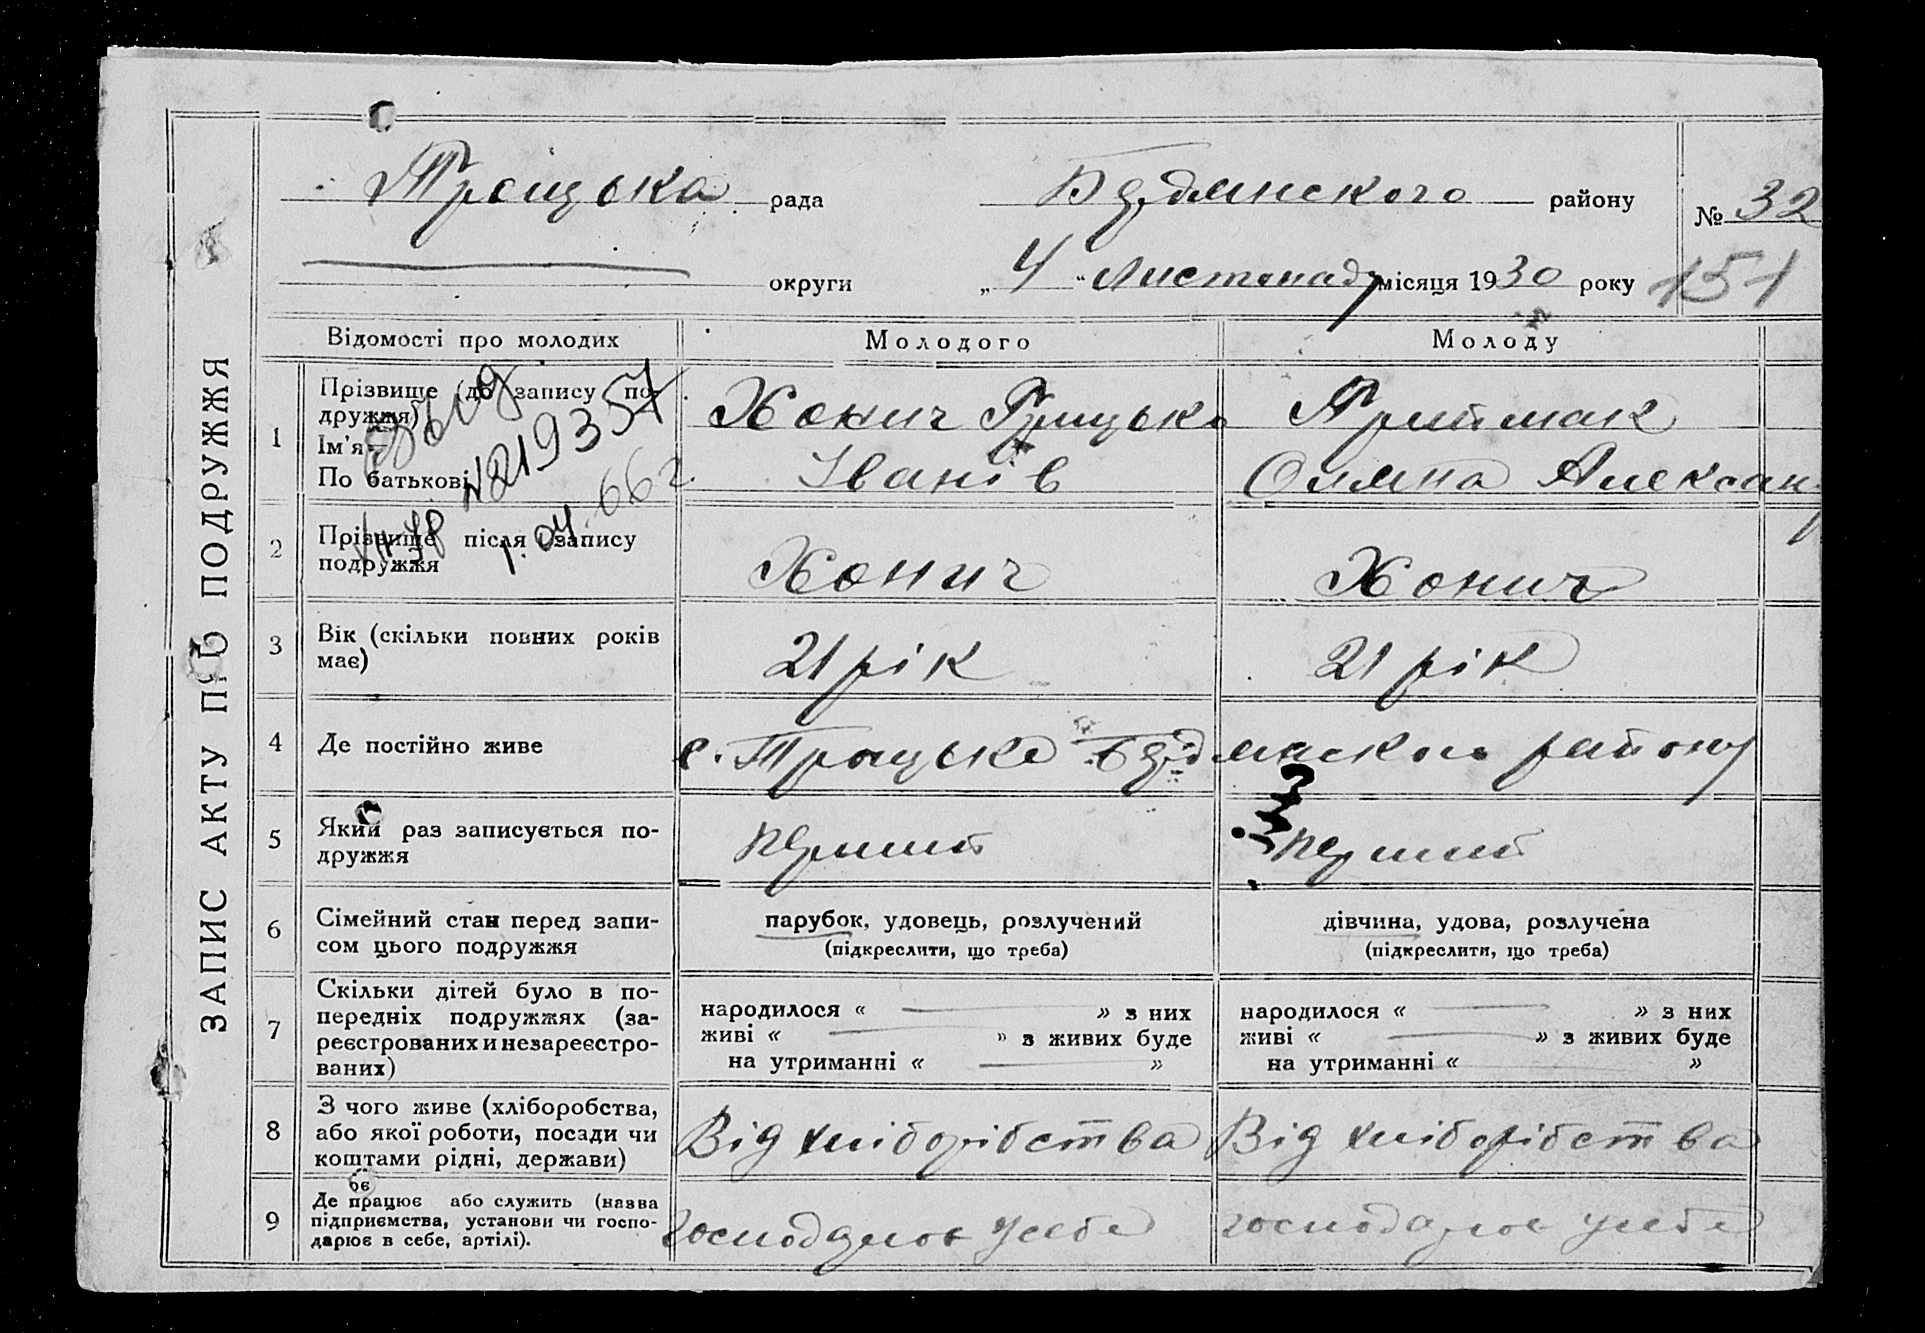 ЗАПИС АКТУ ПРО ПОДРУЖЖЯ
Троцька рада Будянського району № 32
округи „4“ Листопаду місяця 1930 року 151
Відомості про молодих Молодого Молоду
1 Прізвище (до запису подружжя)
Ім'я
По батькові
Хонич Грицько
Іванів
Приймак
Оляна Алексан
№219357
66 г.
2 Прізвище після запису
подружжя
Хонич Хонич
3 Вік (скільки повних років
має)
21 рік 21 рік
4 Де постійно живе с. Троцьке Будянского району
5 Який раз записується по-
дружжя
перший перший
6 Сімейний стан перед запи-
сом цього подружжя
парубок, удовець, розлучений
(підкреслити, що треба)
дівчина, удова, розлучена
(підкреслити, що треба)
7 Скільки дітей було в по-
передніх подружжях (за-
реєстрованих и незареєстро-
ваних)
народилося « » з них
живі « » з живих буде
на утриманні « »
народилося « » з них
живі « » з живих буде
на утриманні « »
8 З чого живе (хліборобства,
або якої роботи, посади чи
коштами рідні, держави)
Від хліборібства Від хліборібства
9 Де працює або служить (назва
підприємства, установи чи госпо-
дарює в себе, артілі).
господарює усебе господарює усебе